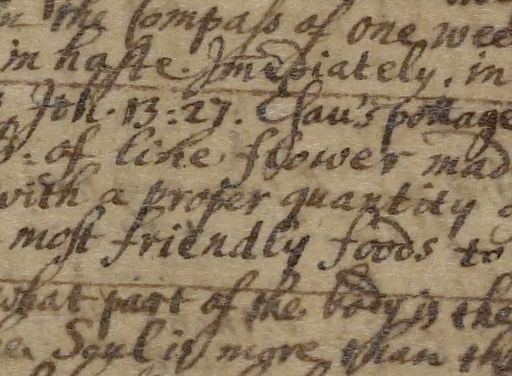 the Compaſs of one wee
in haſte. Imediately, in
Jth. 13:27. Esau's pottage
of fine flower mad
with a proper quantity
moſt friendly foods to
what part of the body is the
Soul is more than th